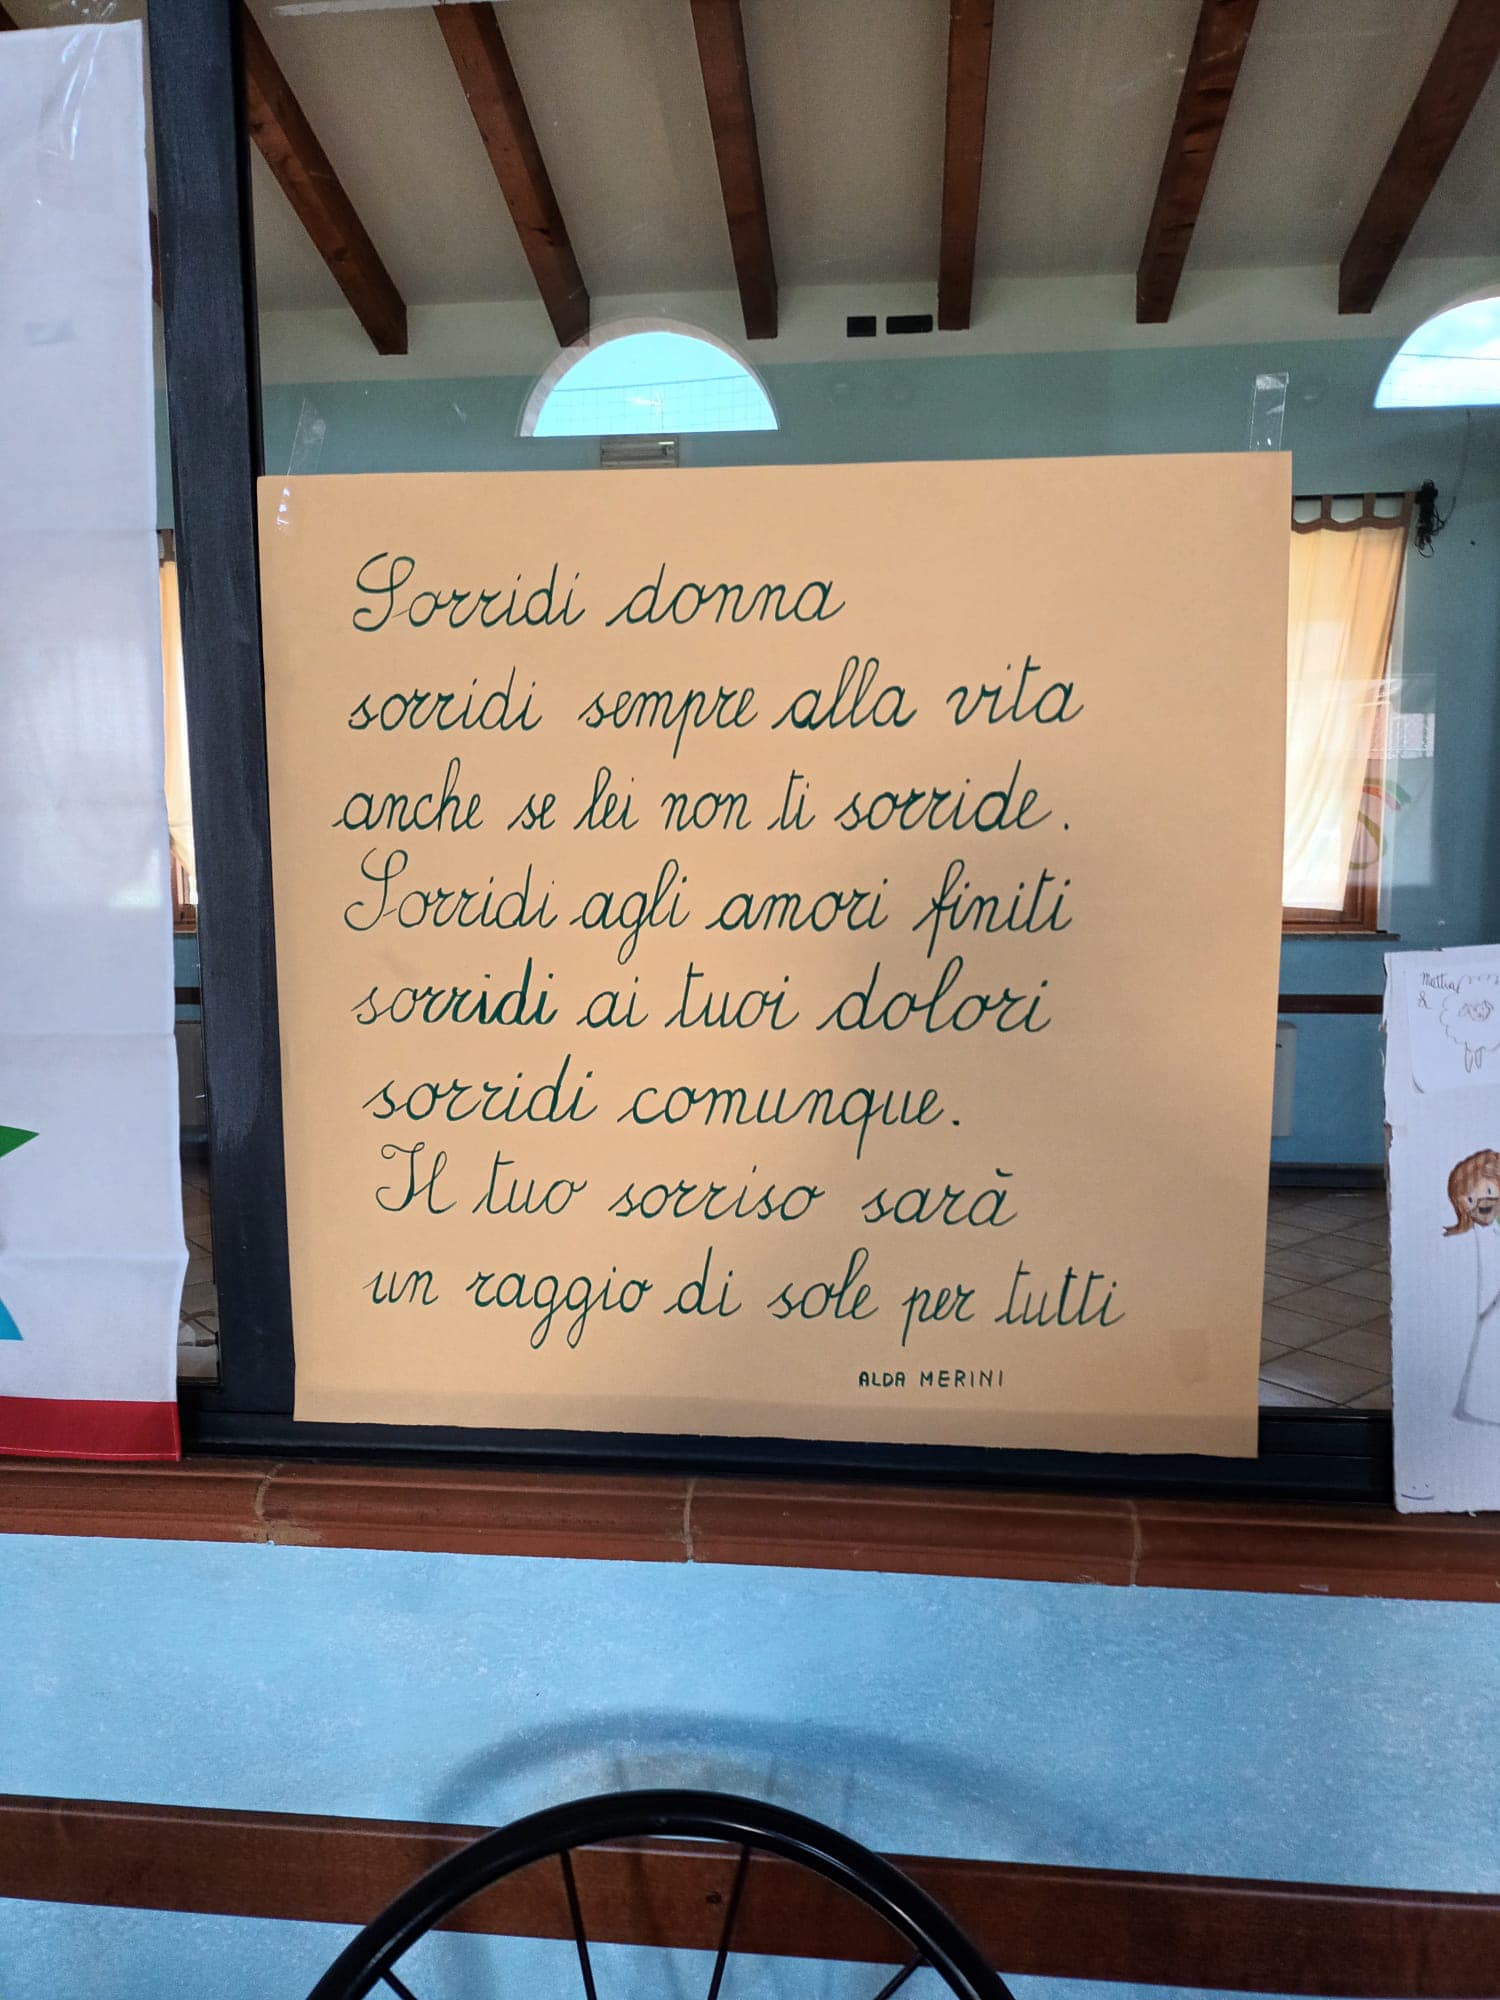 Sorridi donna
sorridi sempre alla vita
anche se lei non ti sorride.
Sorridi agli amori finiti
sorridi ai tuoi dolori
sorridi comunque.
Il tuo sorriso sarà
un raggio di sole per tutti
ALDA MERINI
Mattia